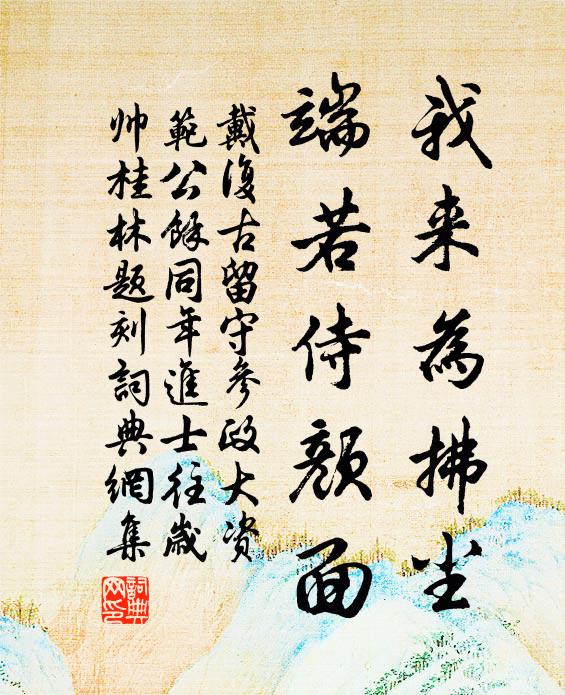 我来為拂尘
端若侍顏面
戴復古留守參政大资
範公餘同年進士往歲
帅桂林題刻詞典網集
詞典网印